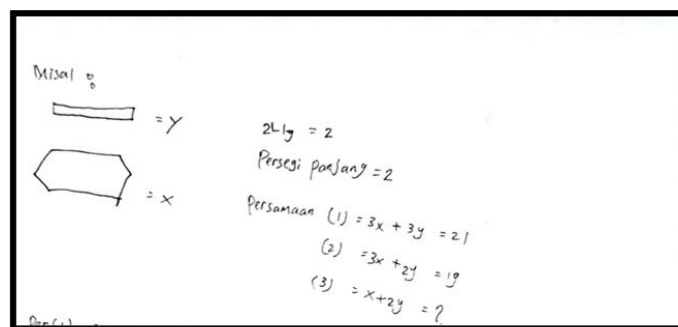 Misal :
= y
= x
21-19 = 2
Persegi panjang = 2
Persamaan (1) = 3x + 3y = 21
(2) = 3x + 2y = 19
(3) = x + 2y = ?